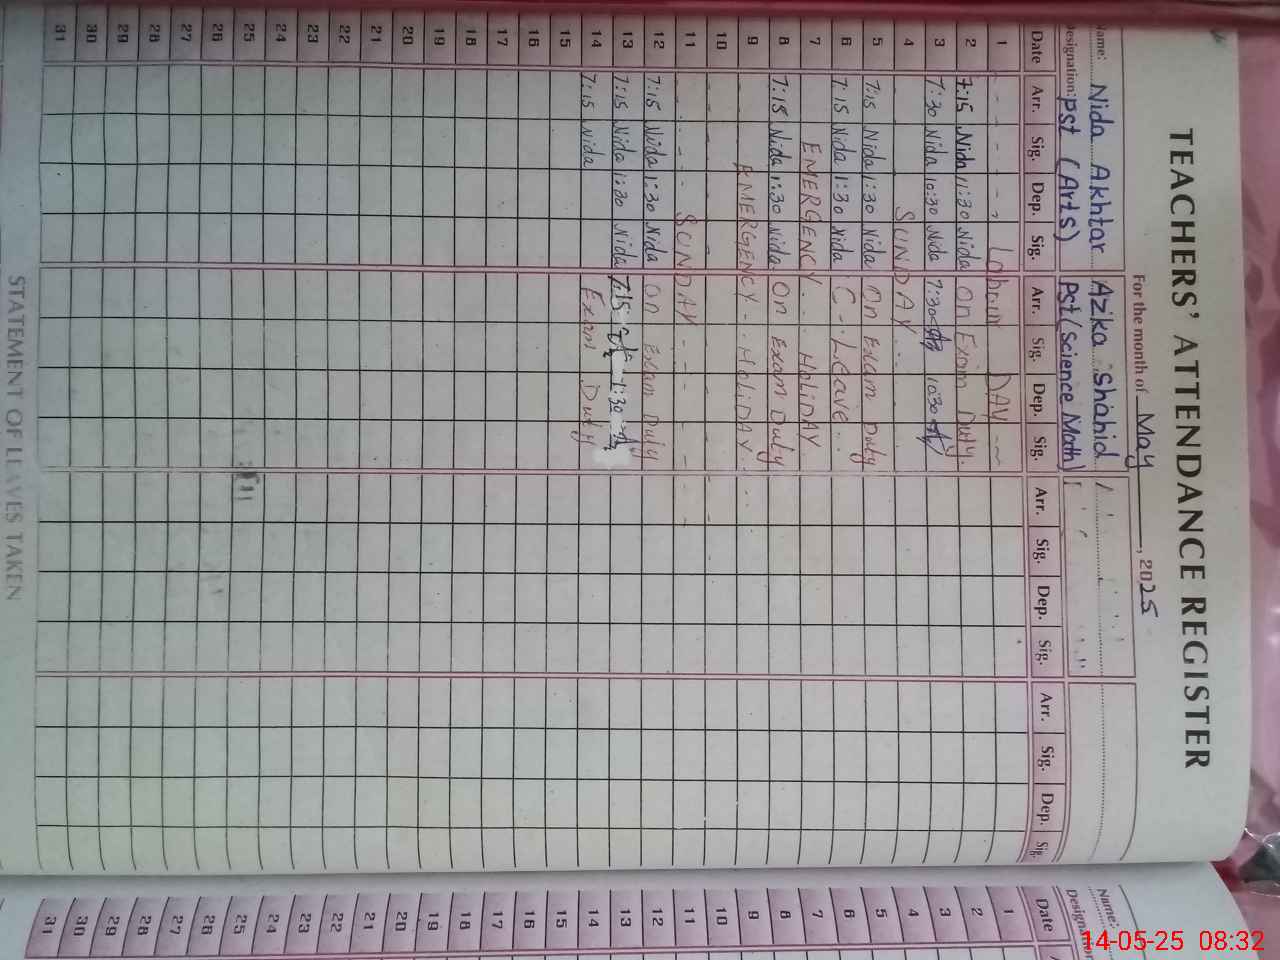 TEACHERS' ATTENDANCE REGISTER
For the month of May, 2025
Name: Nida Akhtar Azka Shahid
Designation: PST (Arts) PST (Science Math)
Date Arr. Sig. Dep. Sig. Arr. Sig. Dep. Sig. Arr. Sig. Dep. Sig. Arr. Sig. Dep. Sig.
1 Labour DAY
2 7:15 Nida 11:30 Nida On Exam Duty.
3 7:30 Nida 10:30 Nida 7:30 10:30
4 SUNDAY
5 7:15 Nida 1:30 Nida On Exam Duty
6 7:15 Nida 1:30 Nida C-Leave
7 EMERGENCY HOLIDAY
8 7:15 Nida 1:30 Nida On Exam Duty
9 EMERGENCY HOLIDAY
10
11 SUNDAY
12 7:15 Nida 1:30 Nida On Exam Duty
13 7:15 Nida 1:30 Nida 7:15 1:30
14 7:15 Nida Exam Duty
15
16
17
18
19
20
21
22
23
24
25
26
27
28
29
30
31
STATEMENT OF LEAVES TAKEN
Name:
Designation
Date
1
2
3
4
5
6
7
8
9
10
11
12
13
14
15
16
17
18
19
20
21
22
23
24
25
26
27
28
29
30
31
14-05-25 08:32